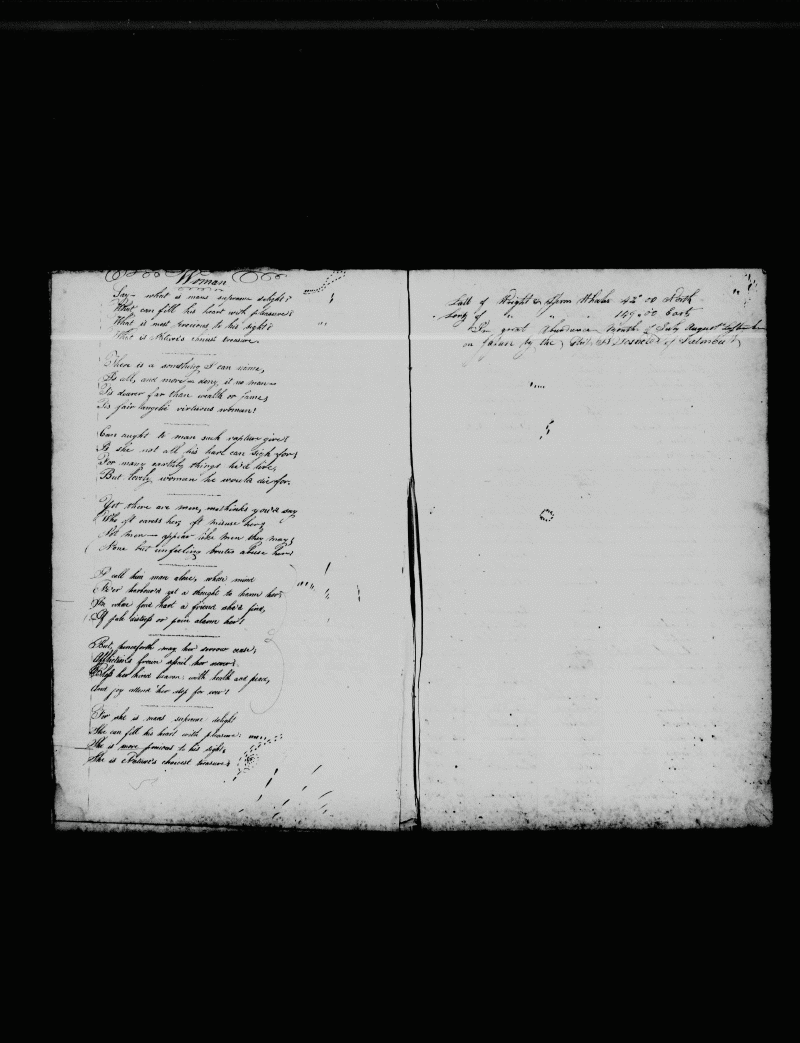 Woman
Say what is mans supreme delight?
What can fill his heart with pleasure?
What is most precious to his sight?
What is Nature's choicest treasure.
There is a something I can name,
Is all, and more — deny it no man —
Tis dearer far than wealth or fame,
Tis fair angelic virtuous woman!
Can aught to man such rapture give?
Is she not all his hart can sigh for?
For many earthly things he'd live,
But lovely woman he would die for.
Yet there are men, methinks you'd say
Who oft caress her, oft misuse her,
Not men — appear like men they may,
None but unfeeling brutes abuse her.
I call him man alone, whose mind
Ne'er harbour'd yet a thought to harm her;
In whose fond hart a friend she'd find,
If fate distress or pain alarm her!
But, henceforth may her sorrow cease,
Affliction's frown assail her never;
Bless her kind heaven with health and peace,
And joy attend her step for ever!
For she is mans supreme delight
She can fill his heart with pleasure:
She is more precious to his sight,
She is Nature's choicest treasure.
Latt of Wright & Sperm Whales 42° 00 North
Long of " " " 149° 00 East
In great Abundance Month of July August September
on